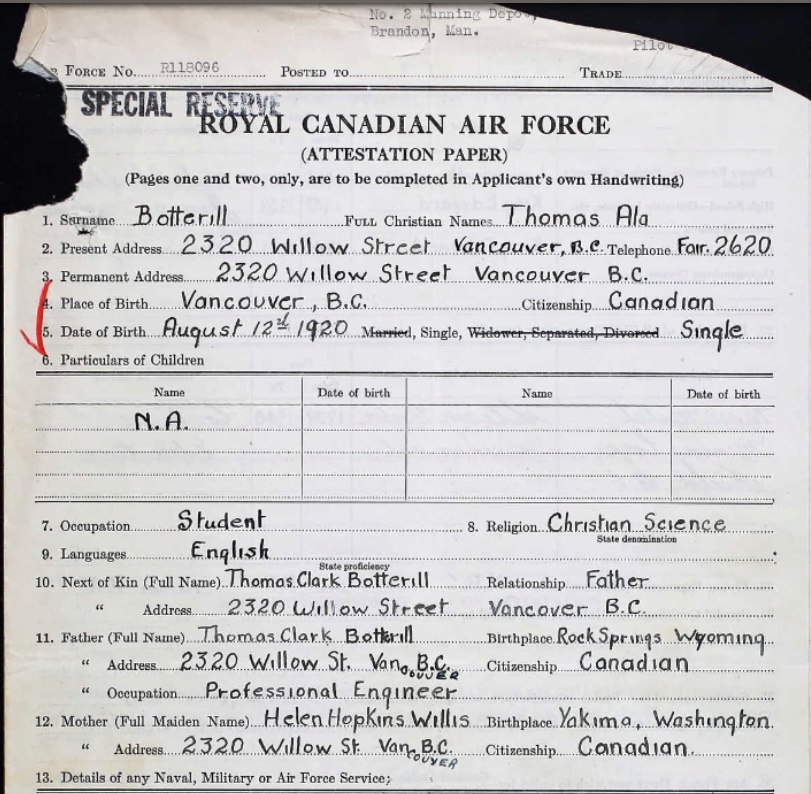 No. 2 Manning Depot,
Brandon, Man.
Pilot
FORCE No. R118096 POSTED TO TRADE
SPECIAL RESERVE
ROYAL CANADIAN AIR FORCE
(ATTESTATION PAPER)
(Pages one and two, only, are to be completed in Applicant's own Handwriting)
1. Surname Botterill FULL CHRISTIAN NAMES Thomas Ala
2. Present Address 2320 Willow Street Vancouver, B.C. Telephone Fair. 2620
3. Permanent Address 2320 Willow Street Vancouver B.C.
4. Place of Birth Vancouver, B.C. Citizenship Canadian
5. Date of Birth August 12th 1920 Married, Single, Widower, Separated, Divorced Single
6. Particulars of Children
Name Date of birth Name Date of birth
N.A.
7. Occupation Student 8. Religion Christian Science
State denomination
9. Languages English
State proficiency
10. Next of Kin (Full Name) Thomas Clark Botterill Relationship Father
" Address 2320 Willow Street Vancover B.C.
11. Father (Full Name) Thomas Clark Botterill Birthplace Rock Springs Wyoming
" Address 2320 Willow St. Vancouver B.C. Citizenship Canadian
" Occupation Professional Engineer
12. Mother (Full Maiden Name) Helen Hopkins Willis Birthplace Yakima, Washington
" Address 2320 Willow St. Vancouver B.C. Citizenship Canadian.
13. Details of any Naval, Military or Air Force Service;